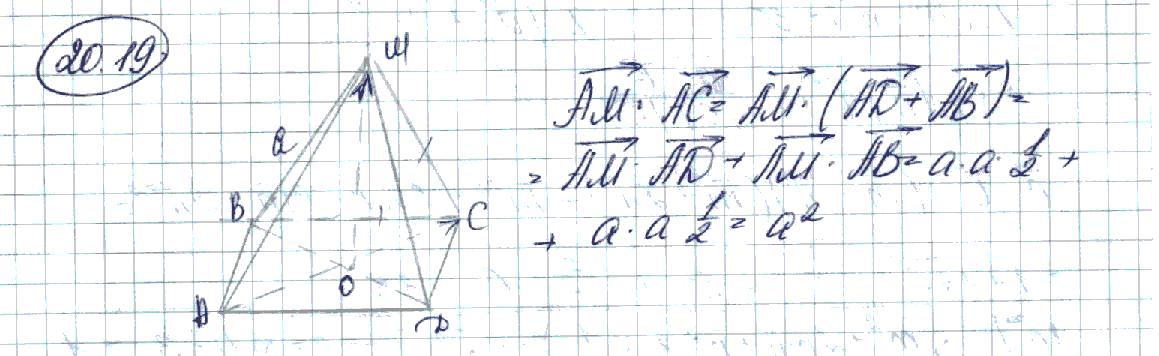 20.19
M
a
B
C
O
A
D
AM⃗ · AC⃗ = AM⃗ · (AD⃗ + AB⃗) =
= AM⃗ · AD⃗ + AM⃗ · AB⃗ = a·a·1/2 +
+ a·a 1/2 = a²